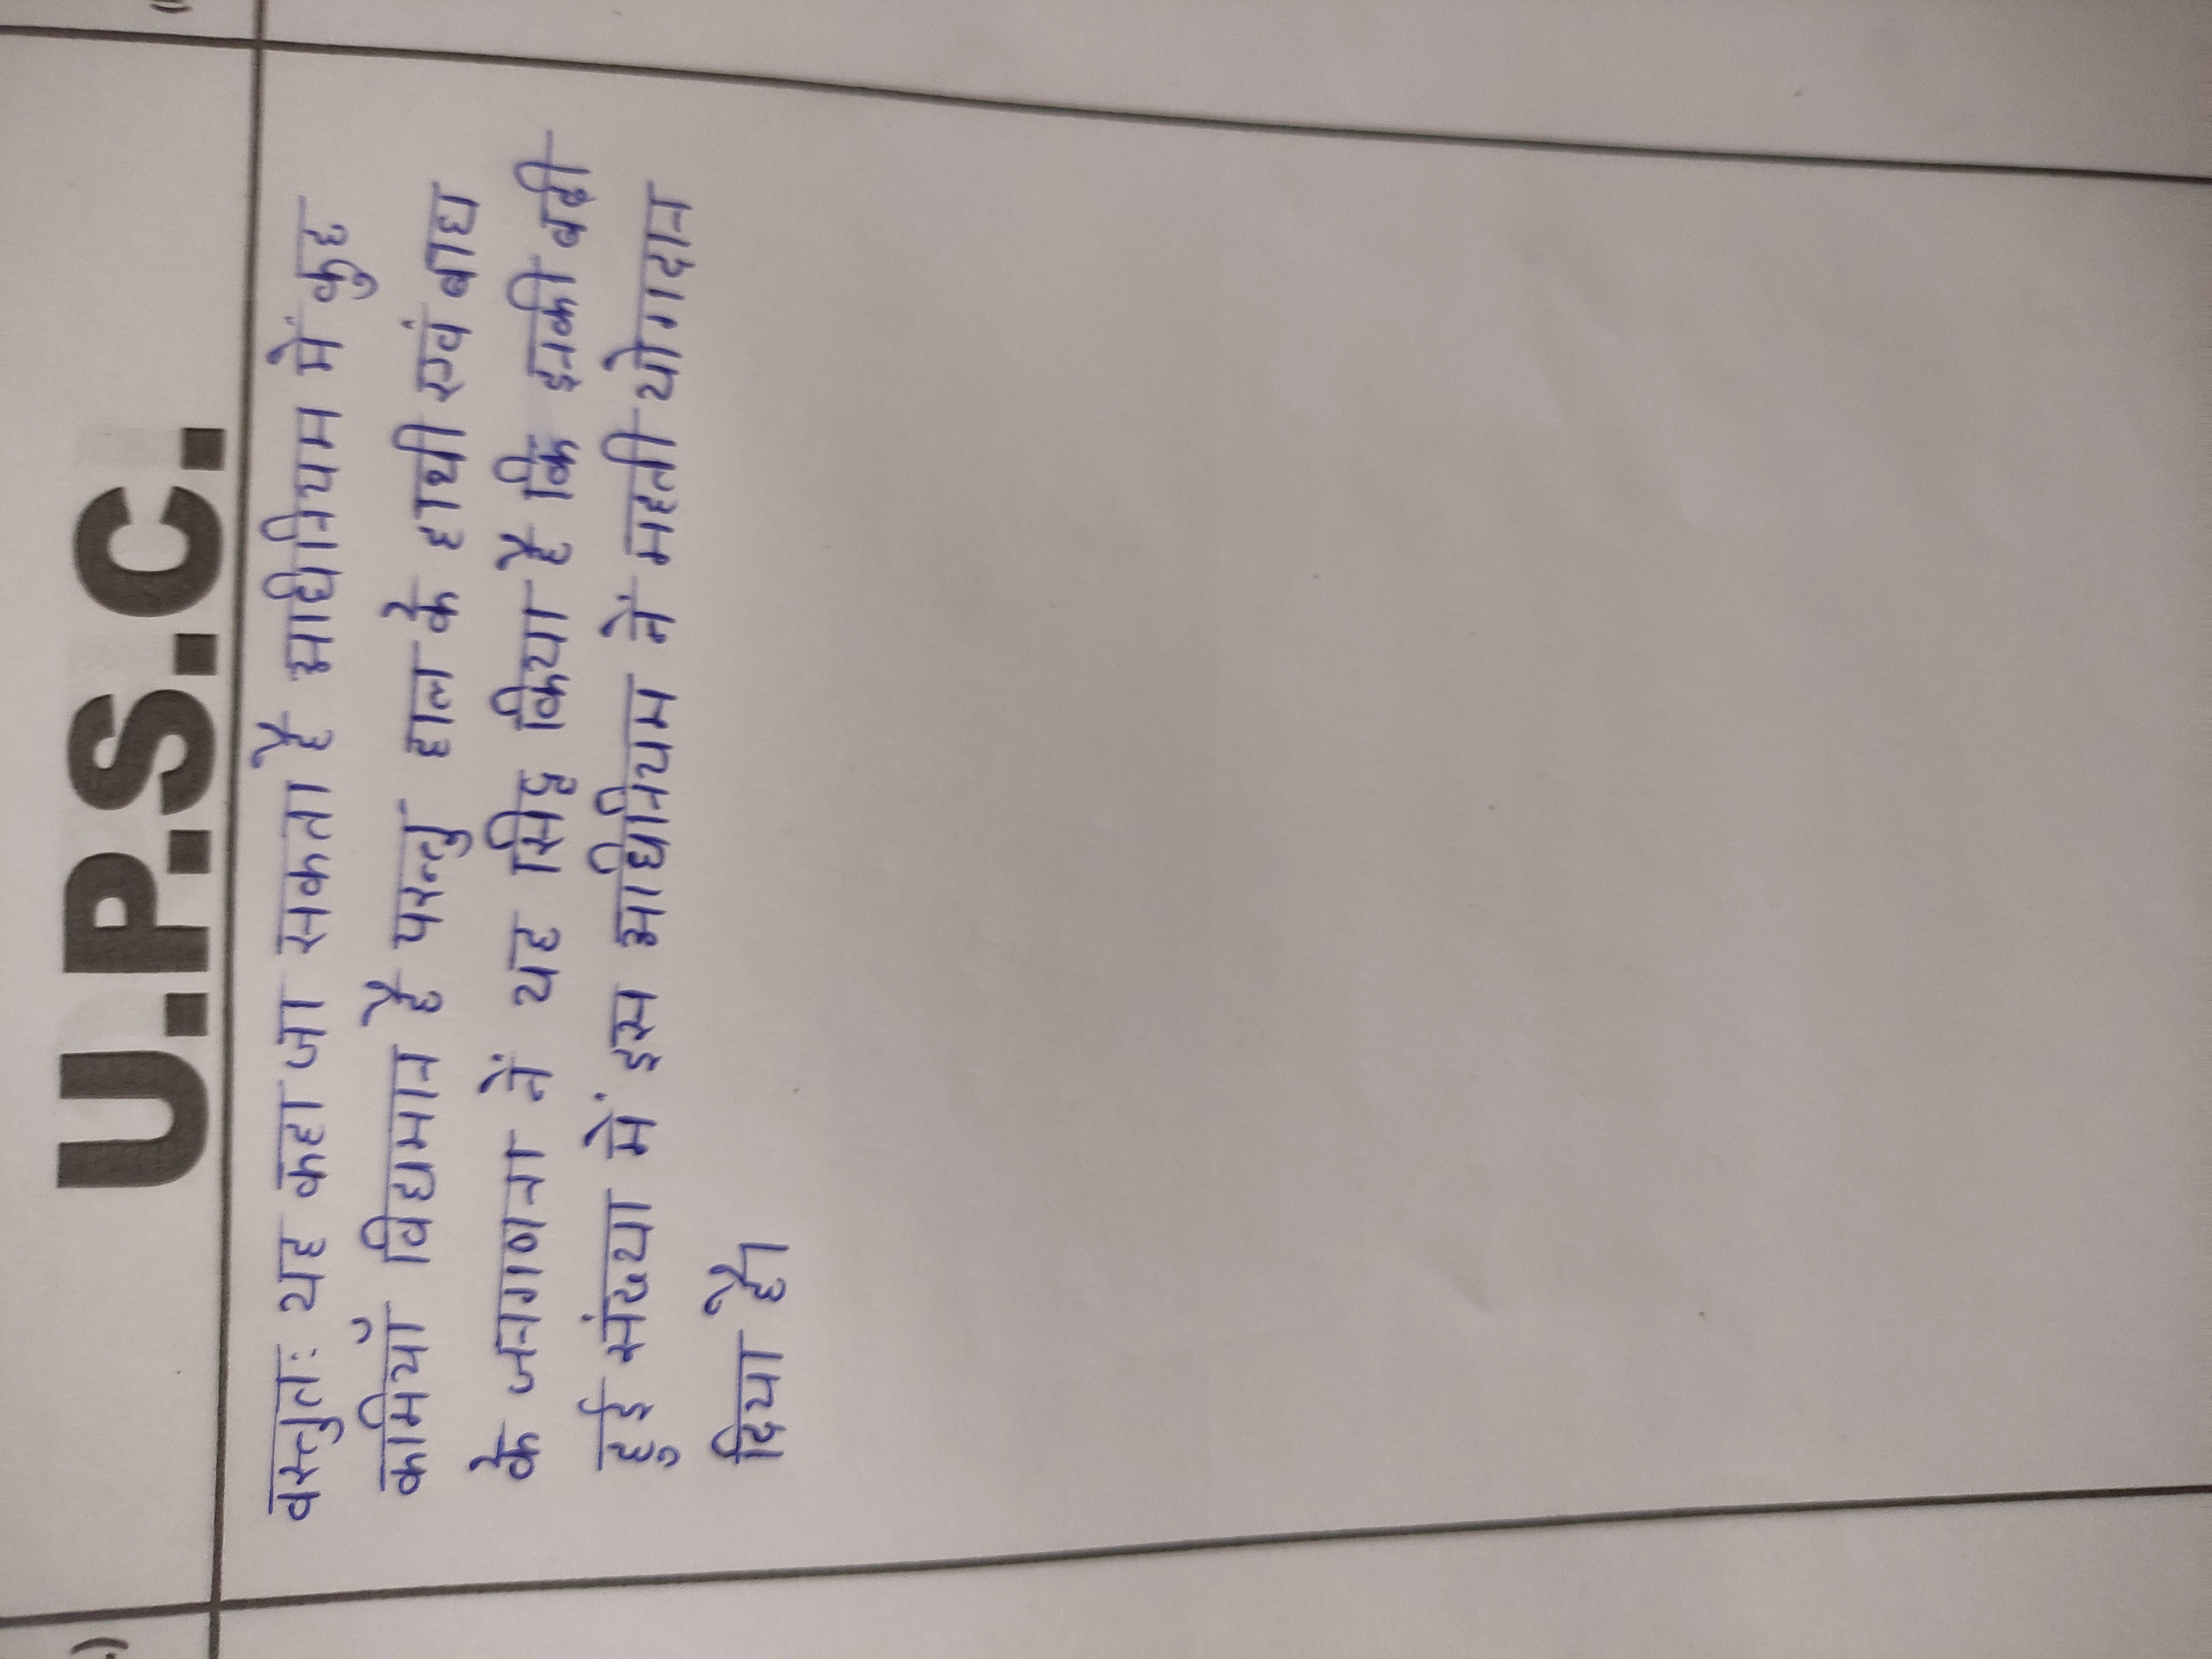 U.P.S.C.
वस्तुतः यह कहा जा सकता है अधिनियम में कुछ
कमियाँ विद्यमान है परन्तु हाल के हाथी एवं बाघ
के जनगणना नें यह सिद्ध किया है कि इनकी बढ़ी
हुई संख्या में इस अधिनियम नें महती योगदान
दिया है।